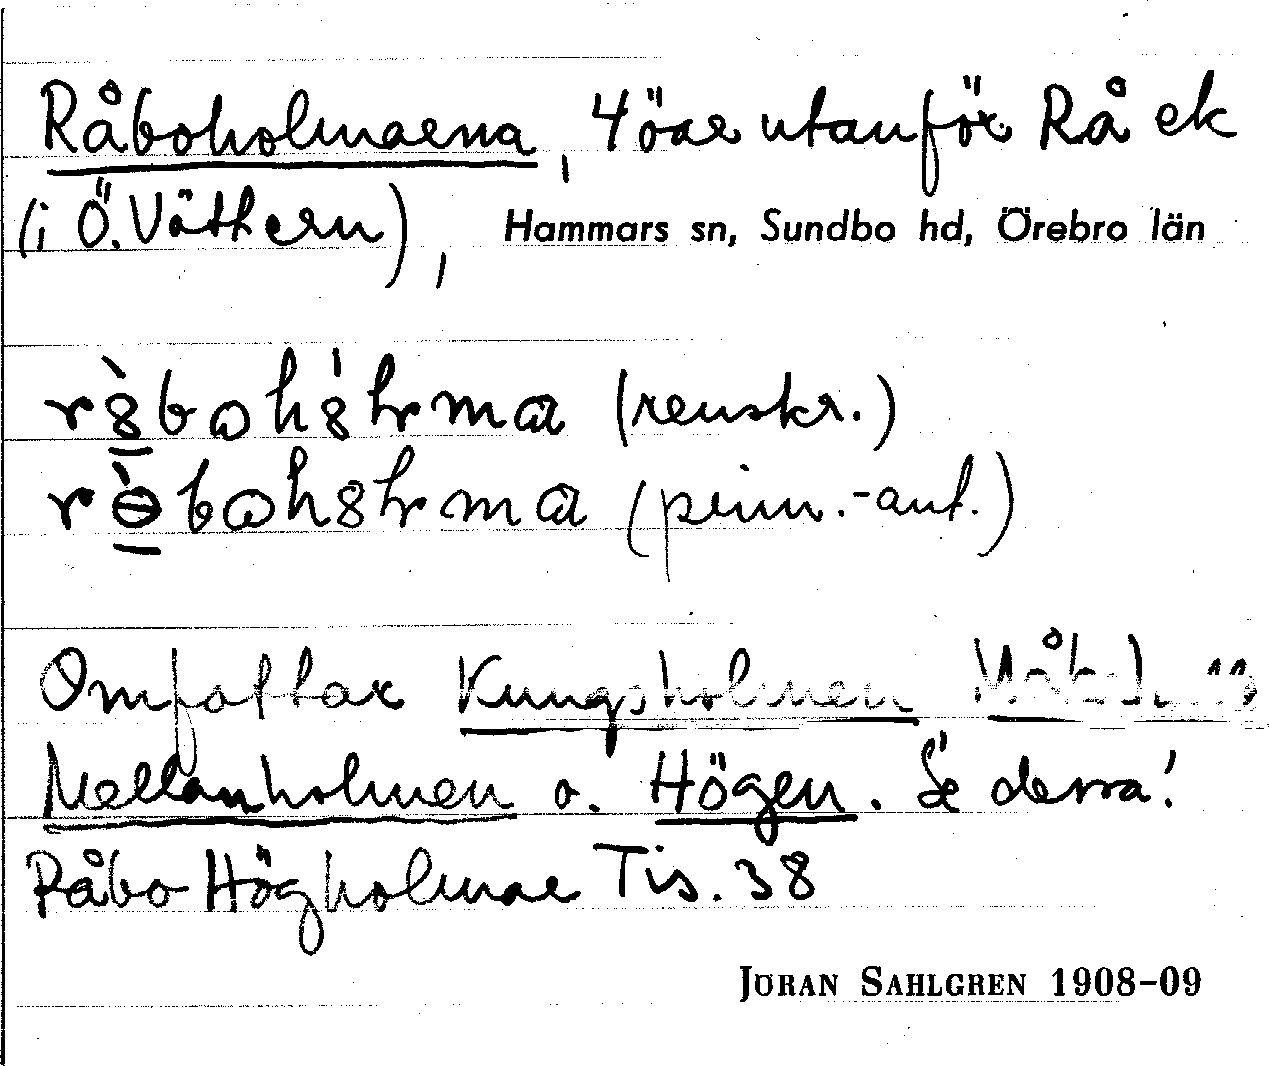 Råboholmarna, 4 öar utanför Rå ek
(i Ö. Vättern), Hammars sn, Sundbo hd, Örebro län
(renskr.)
(prim.-ant.)
Omfattar Kungsholmen
Mellanholmen o. Högen. Se dessa!
Råbo Högholmar Tis. 38
JÖRAN SAHLGREN 1908-09